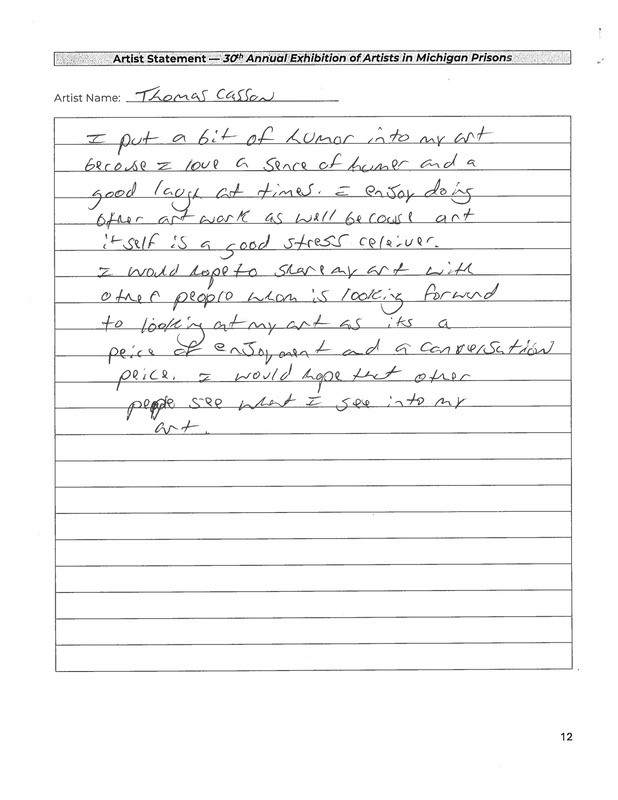 Artist Statement — 30th Annual Exhibition of Artists in Michigan Prisons
Artist Name: Thomas Casson
I put a bit of humor into my art
becouse I love a sence of humer and a
good laugh at times. I enjoy doing
other art work as well becouse art
itself is a good stress releiver.
I would hope to share my art with
other people whom is looking forward
to looking at my art as its a
peice of enjoyment and a conversation
peice. I would hope that other
people see what I see into my
art.
12